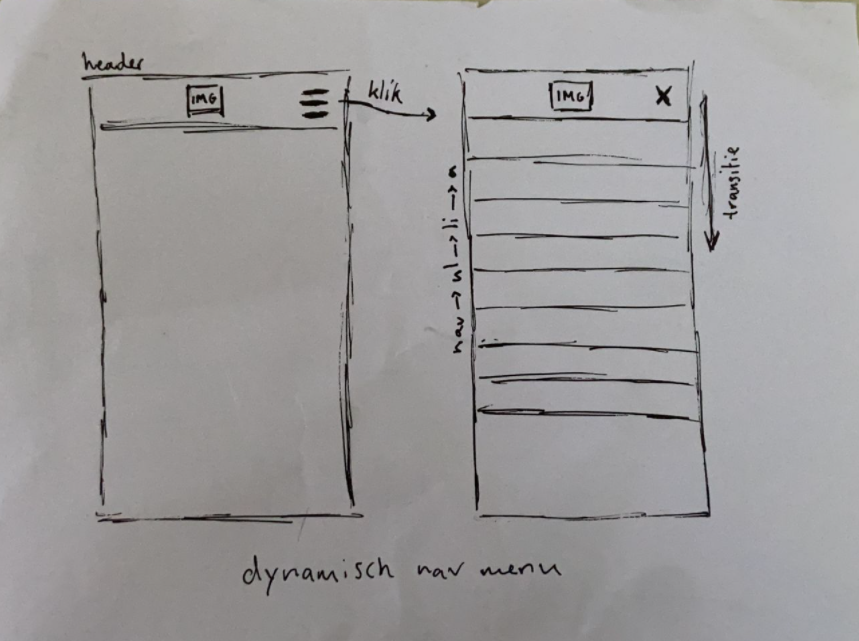 header
IMG
klik
IMG
X
nav → ul → li → a
transitie
dynamisch nav menu